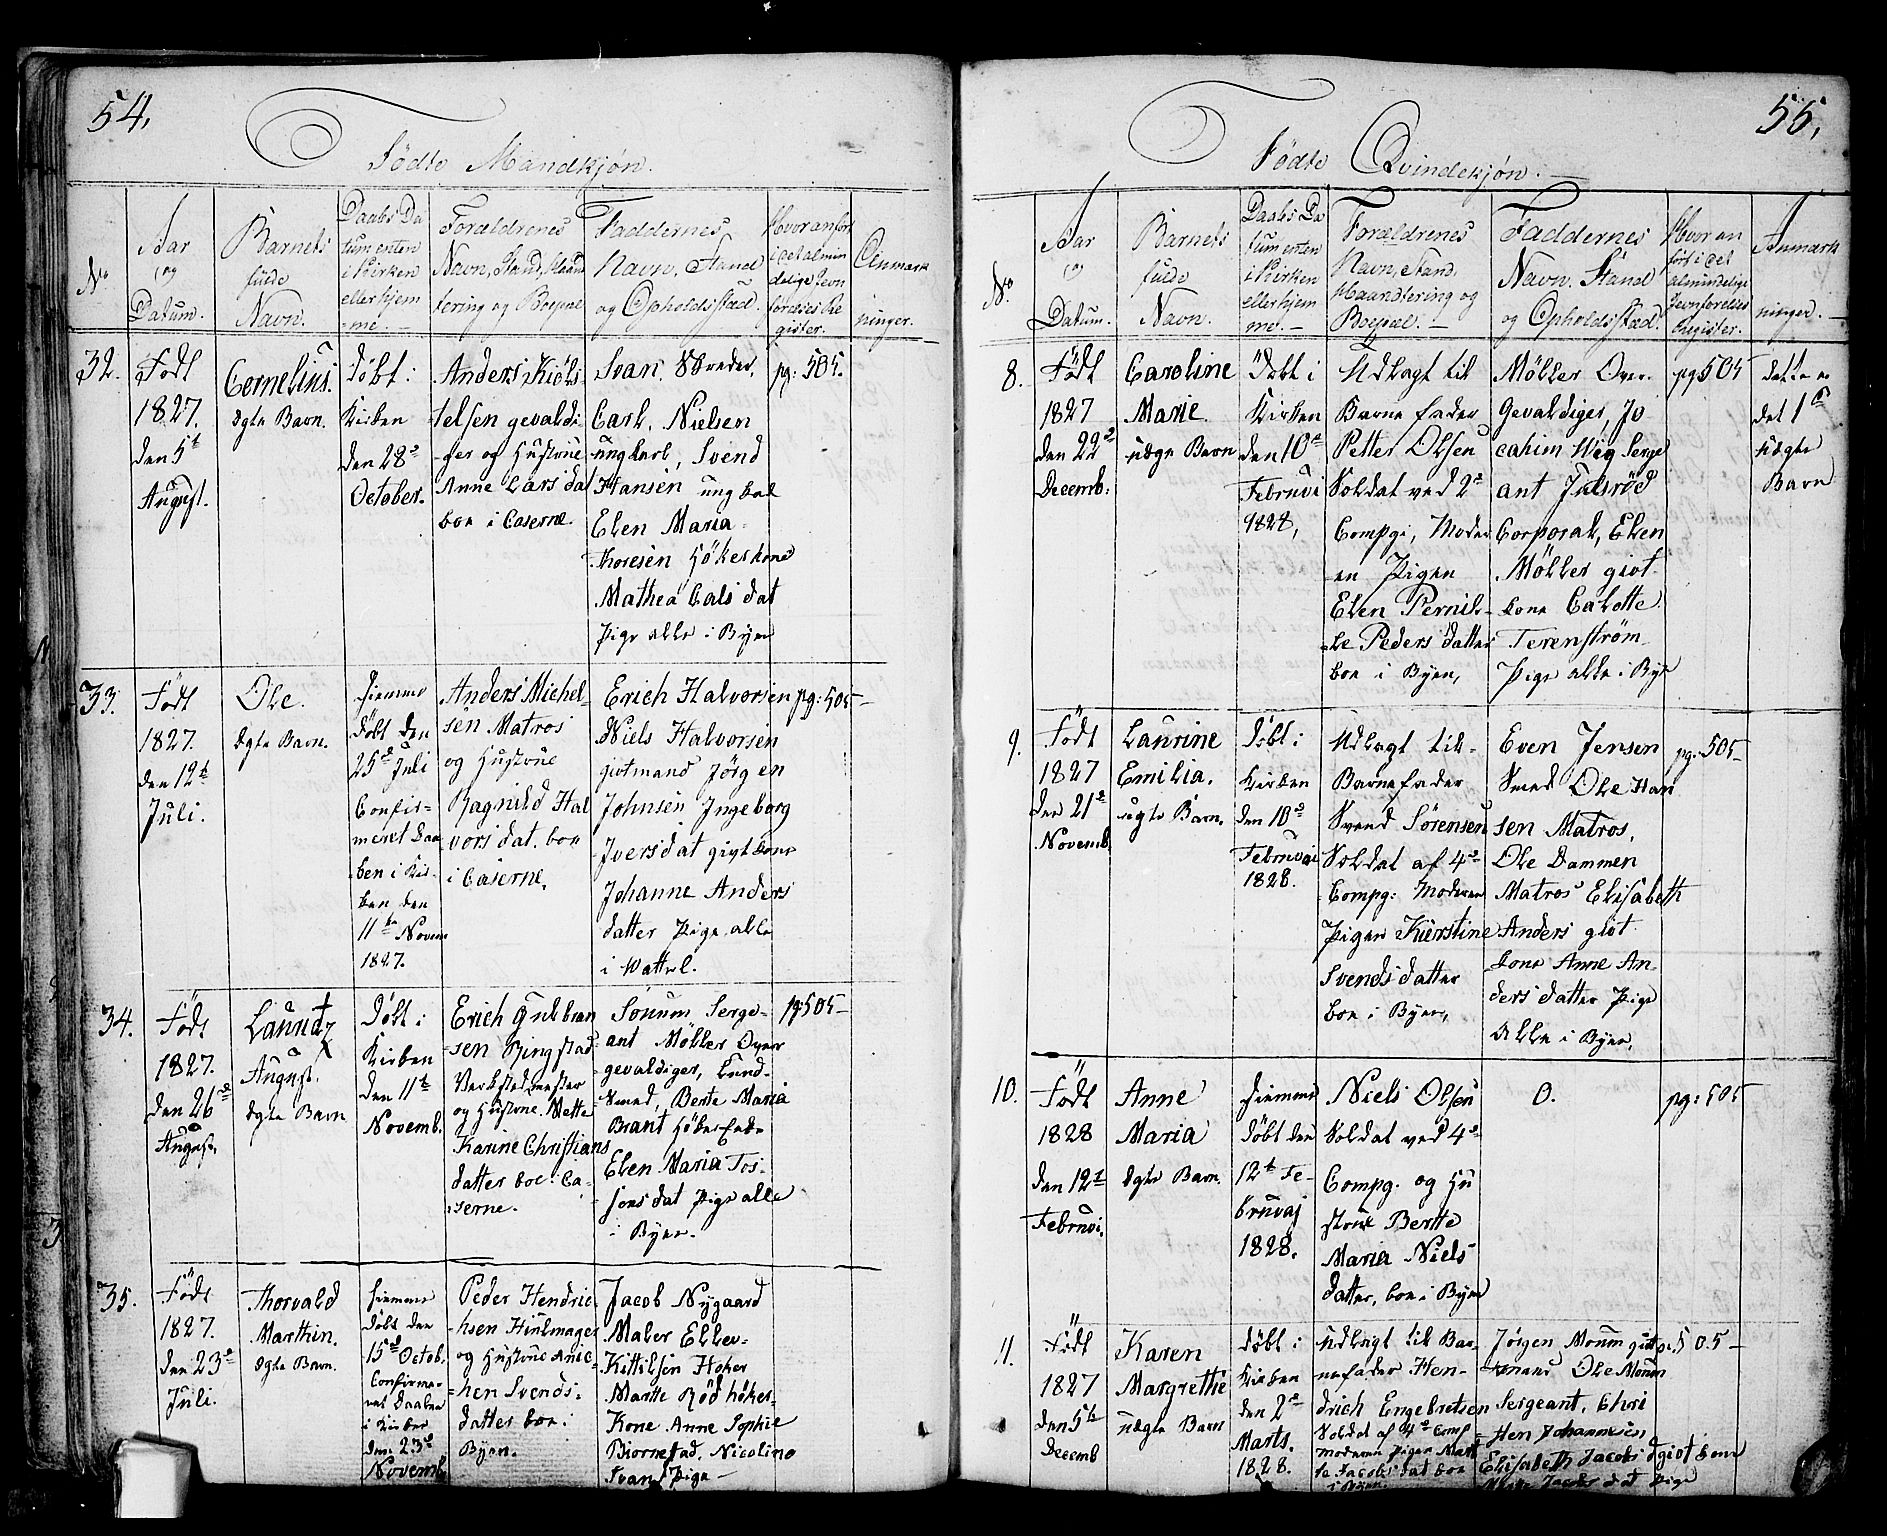 54.
Födte Mandkjön.
No
Aar
og
Datum.
Barnets
fulde
Navn.
Daabs Da
tum enten
i Kirken
eller hjem
me.
Forældrenes
Navn, Stand, Haand
tering og Boepæl
Faddernes
Navn, Stand
og Opholdsstæd.
Hvor anfört
i det almin
delige Jevn
förelses Re
gister.
Anmærk
ninger.
32.
Födt
1827.
den 5t
August.
Cornelius.
Ægte Barn.
Döbt i
Kirken
den 28d
October.
Anders Kiöls
telsen gevaldi
ger og Hustrue
Anne Lars dat
boe i Caserne.
Svan. Skreder,
Carl. Nielsen
ungkarl, Svend
Hansen ung kal
Elen Maria
Thoresen Hökerkone
Mathea Cals dat
Pige alle i Byen
pg: 505.
33.
Födt
1827.
den 12t
Juli.
Ole.
Ægte Barn.
Hiemme
döbt den
25d Juli
Confir-
meret Daa
ben i Kir-
ken den
11te Novem
1827.
Anders Michel-
sen Matros
og Hustrue
Ragnild Hal
vors dat. boe
i Caserne.
Erich Halvorsen
Niels Halvorsen
giftmand Jörgen
Johnsen Ingeborg
Ivers dat givt kone
Johanne Anders
datter Pige alle
i Wattel.
pg: 505-
34.
Födt
1827.
den 26d
August.
Lauridz
August.
Ægte Barn
Döbt i
Kirken
den 11t
Novemb.
Erich Gulbran
sen Ringstad
Verkstedmester
og Hustrue. Mette
Karine Christians
datter boe i Ca-
serne.
Sonum Serge-
ant Möller Over
gevaldiger, Lund-
Smed, Berte Maria
Brant Höker Enke
Elen Maria Tos-
sons dat Pige alle
i Byen.
pg: 505-
35.
Födt
1827.
den 23d
Juli.
Thorvald
Marthin.
Ægte Barn.
Hiemme
döbt den
15d Octob.
Confirme-
ret Daaben
i Kirken
den 23d
Novemb
Peder Hendric
hsen Hiulmager
og Hustrue Anic-
hen Svends-
datter boe i
Byen.
Jacob Nygaard
Maler Ellev-
Kittilsen Höker
Marthe Röd höker-
Kone Anne Sophie
Biornestad, Nicoline
Svan, Pige-
55.
Födte Qvindekjön.
No
Aar
og
Datum.
Barnets
fulde
Navn.
Daabs Da
tum enten
i Kirken
eller hjem
me.-
Forældrenes
Navn, Stand,
Haandtering og
Boepæl.-
Faddernes
Navn. Stand
og Opholdsstæd.
Hvor an
fört i det
almindelige
Jevnförelses
Register.
Anmærk
ninger.-
8.
Födt
1827
den 22d
Decemb:
Caroline
Marie.
uægte Barn
Döbt i
Kirken
den 10d
Februvi
1828,
Udlagt til
Barne fader
Petter Olsen
Soldat ved 2d
Compgi, Moder
en Pigen
Elen Pernil-
le Peders datter
boe i Byen,
Möller Over
Gevaldiger, Jo
cahim Wig Serge
ant Julsröd
Corporal, Elen
Möller givt
kone Calotte
Terenström
Pige alle i Bye
pg 505
dette er
det 1te
uægte
Barn
9.
Födt
1827
den 21d
Novemb
Laurine
Emilia.
uægte Barn.
Döbt i
Kirken
den 10d
Februvai
1828.
Udlagt til
Barnefader
Svend Sörensen
Soldat af 4d
Compg: Moderen
Pigen Kierstine
Svends datter
boe i Byen,
Even Jensen
Smed Ole Han
sen Matros,
Ole Dammen
Matros Elisabeth
Anders givt
kone Anne An-
ders datter Pige
Alle i Byen,
pg: 505-
10.
Födt
1828
den 12t
Februvi.
Anne
Maria
Ægte Barn.
Hiemme
döbt den
12t Fe-
bruvaj
1828.
Niels Olsen
Soldat ved 4d
Compg. og Hu
strue Berthe
Maria Niels
datter, boe i Byen
O.
pg: 505
11.
Födt
1827
den 5t
Decemb
Karen
Margrethe
uægte Barn
Döbt i
Kirken
den 2d
Marts.
1828.
Udlagt til Bar-
nefader Hen-
drich Engebretsen
Soldat af 4d Comp
Moderen Pigen Mart
he Jacobs dat boe
i Byen.
Jörgen Monum givt
mand Ole Monum
Sergeant, Chri
Hen Johannesen
Elisabeth Jacobs d givt kone
Jacobs dat Pige
pg. 505-